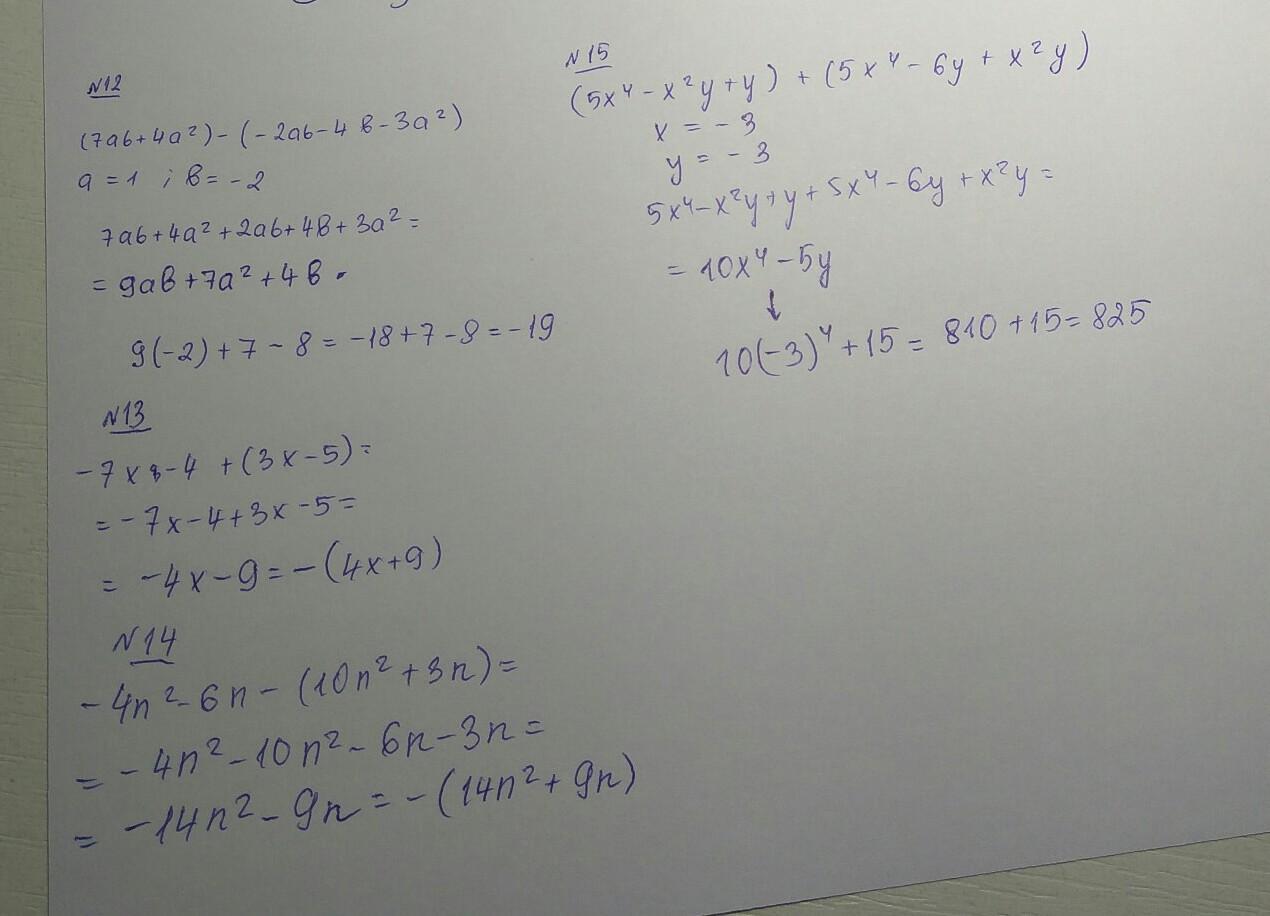 N12
(7ab+4a²)-(-2ab-4b-3a²)
a=1 ; b=-2
7ab+4a²+2ab+4b+3a²=
=9ab+7a²+4b.
9(-2)+7-8=-18+7-8=-19
N13
-7x-4 +(3x-5)=
=-7x-4+3x-5=
= -4x-9=-(4x+9)
N14
-4n²-6n-(10n²+3n)=
=-4n²-10n²-6n-3n=
= -14n²-9n=-(14n²+9n)
N15
(5x⁴-x²y+y)+(5x⁴-6y+x²y)
x=-3
y=-3
5x⁴-x²y+y+5x⁴-6y+x²y=
= 10x⁴-5y
↓
10(-3)⁴+15= 810+15=825